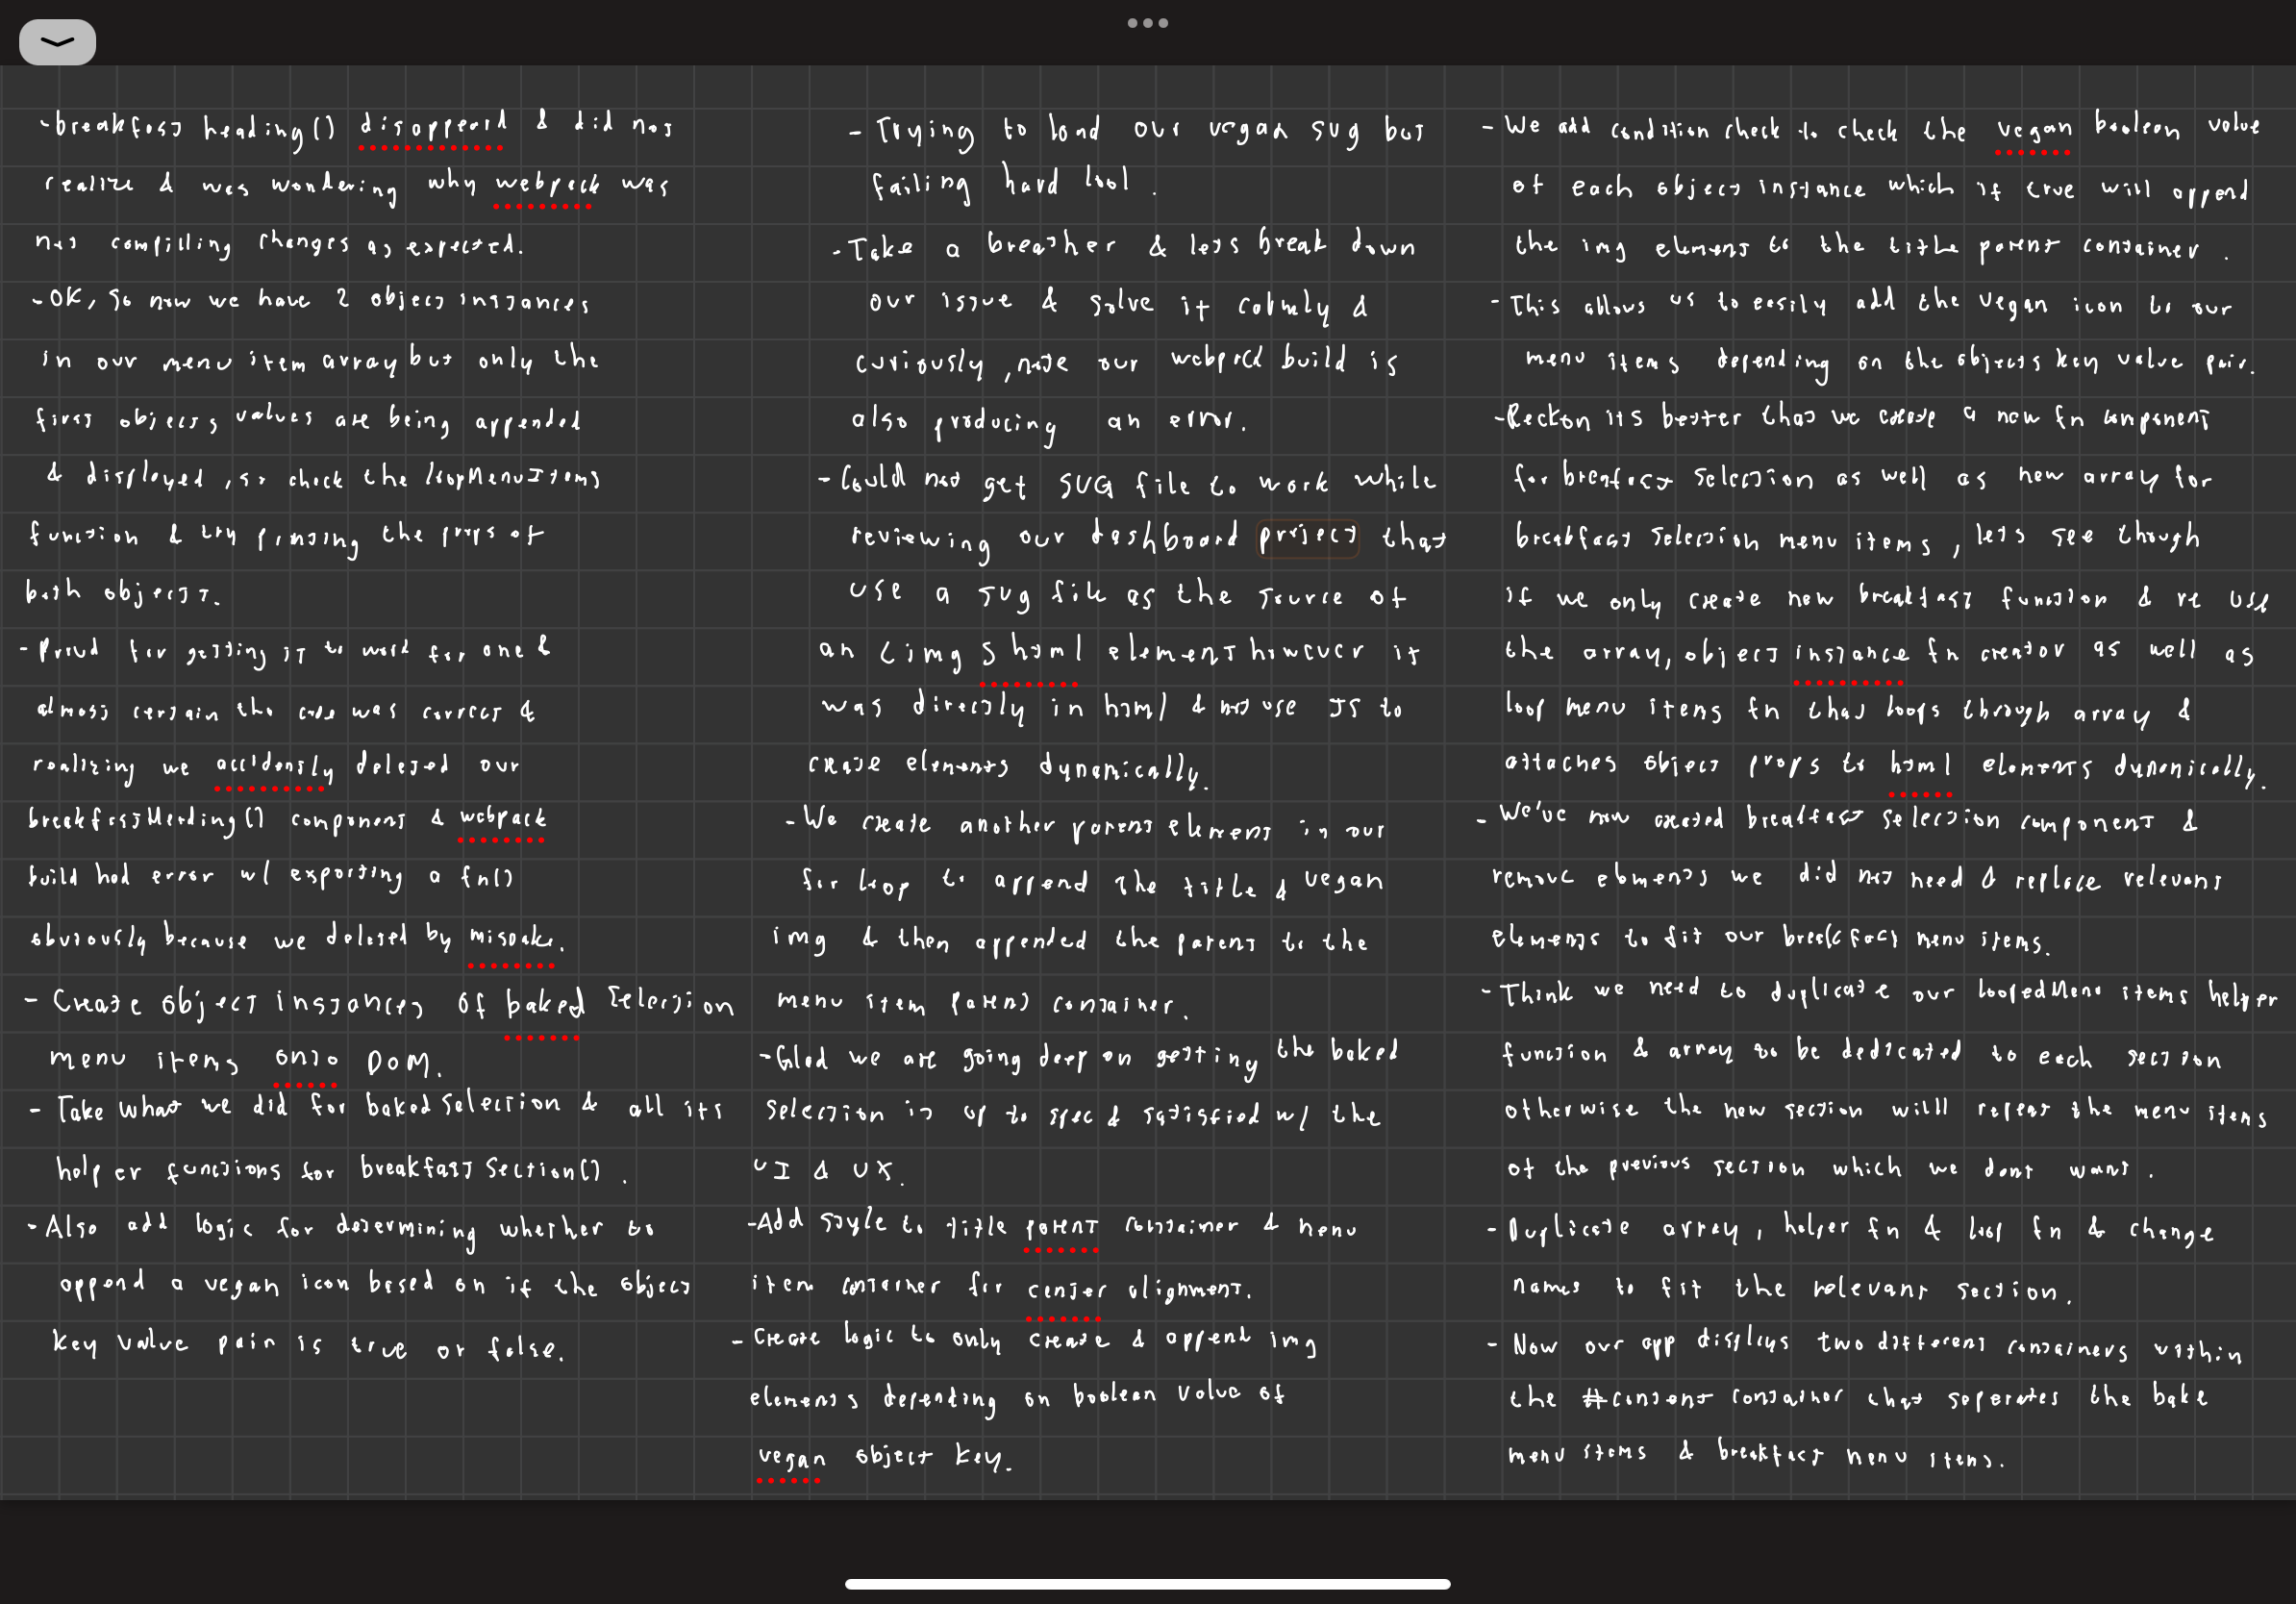 - breakfast heading() disappeard & did not
realize & was wondering why webpack was
not compilling changes as expected.
- OK, so now we have 2 object instances
in our menu item array but only the
first objects values are being appended
& displayed, so check the loopMenuItems
function & try pinning the props of
both objects.
- Proud for getting it to work for one &
almost certain the code was correct &
realizing we accidently deleted our
breakfastHeading() component & webpack
build had error w/ exporting a fn()
obviously because we deleted by mistake.
- Create object instances of baked selection
menu items onto DOM.
- Take what we did for baked selection & all its
helper functions for breakfast Section().
- Also add logic for determining whether to
append a vegan icon based on if the object
key value pair is true or false.
- Trying to load our vegan svg but
failing hard lool.
- Take a breather & lets break down
our issue & solve it calmly &
curiously, note our webpack build is
also producing an error.
- Could not get SVG file to work while
reviewing our dashboard project that
use a svg file as the source of
an <img> html element however it
was directly in html & not use JS to
create elements dynamically.
- We create another parent element in our
for loop to append the title & vegan
img & then appended the parent to the
menu item parent container.
- Glad we are going deep on getting the baked
selection is up to spec & satisfied w/ the
UI & UX.
- Add style to title parent container & menu
item container for center alignment.
- Create logic to only create & append img
elements depending on boolean value of
vegan object key.
- We add condition check to check the vegan boolean value
of each object instance which if true will append
the img element to the title parent container.
- This allows us to easily add the vegan icon to our
menu items depending on the objects key value pair.
- Reckon its better that we create a new fn component
for breafast selection as well as new array for
breakfast selection menu items, lets see though
if we only create new breakfast function & re use
the array, object instance fn creator as well as
loop menu items fn that loops through array &
attaches object props to html elements dynamically.
- We've now created breakfast selection component &
remove elements we did not need & replace relevant
elements to fit our breakfast menu items.
- Think we need to duplicate our loopedMenu items helper
function & array to be dedicated to each section
otherwise the new section willl repeat the menu items
of the previous section which we dont want.
- Duplicate array, helper fn & loop fn & change
names to fit the relevant section.
- Now our app displays two different containers within
the #content container that seperates the bake
menu items & breakfast menu items.